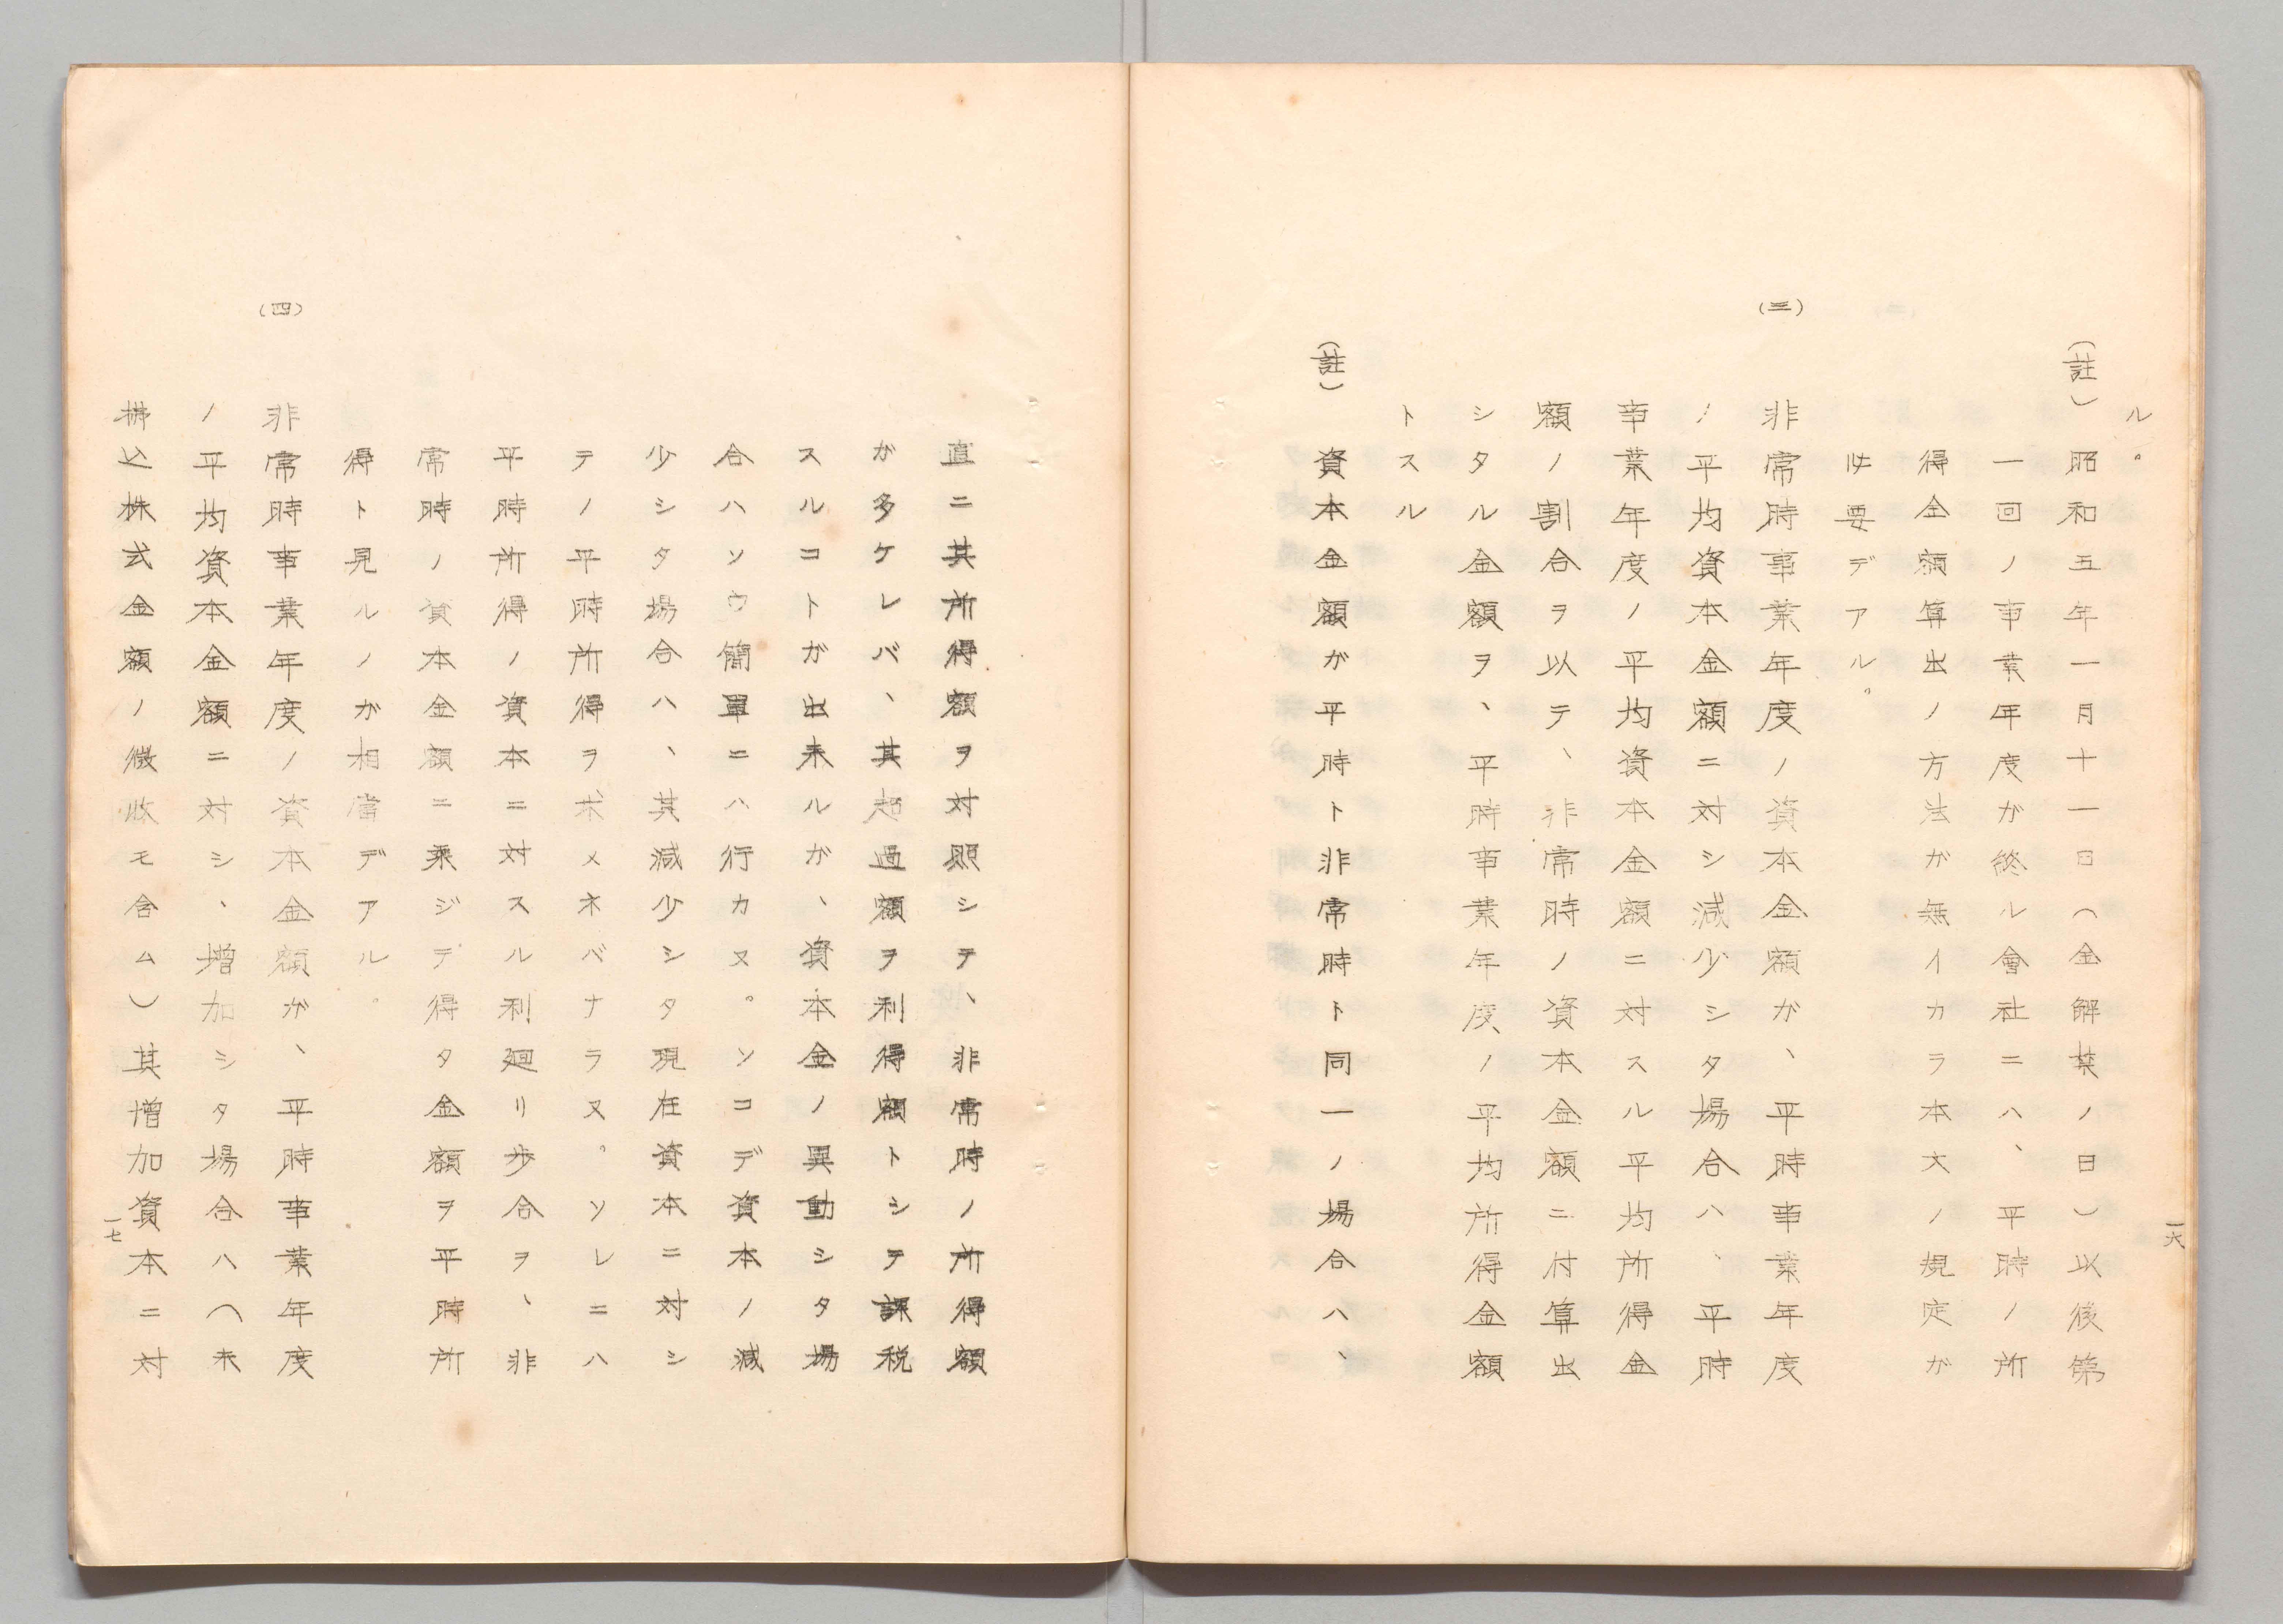 ル。
（註）昭和五年一月十一日（金解禁ノ日）以後第
一回ノ事業年度が終ル會社ニハ、平時ノ所
得金額算出ノ方法が無イカラ本文ノ規定が
必要デアル。
（三）非常時事業年度ノ資本金額が、平時事業年度
ノ平均資本金額ニ対シ減少シタ場合ハ、平時
事業年度ノ平均資本金額ニ対スル平均所得金
額ノ割合ヲ以テ、非常時ノ資本金額ニ付算出
シタル金額ヲ、平時事業年度ノ平均所得金額
トスル
（註）資本金額が平時ト非常時ト同一ノ場合ハ、
一六
直ニ其所得額ヲ対照シテ、非常時ノ所得額
が多ケレバ、其超過額ヲ利得額トシテ課税
スルコトが出来ルが、資本金ノ異動シタ場
合ハソウ簡單ニハ行カヌ。ソコデ資本ノ減
少シタ場合ハ、其減少シタ現在資本ニ対シ
テノ平時所得ヲ求メネバナラヌ。ソレニハ
平時所得ノ資本ニ対スル利廻リ歩合ヲ、非
常時ノ資本金額ニ乘ジデ得タ金額ヲ平時所
得ト見ルノが相當デアル。
（四）非常時事業年度ノ資本金額が、平時事業年度
ノ平均資本金額ニ対シ、增加シタ場合ハ（未
拂込株式金額ノ徴收モ含ム）其增加資本ニ対
一七